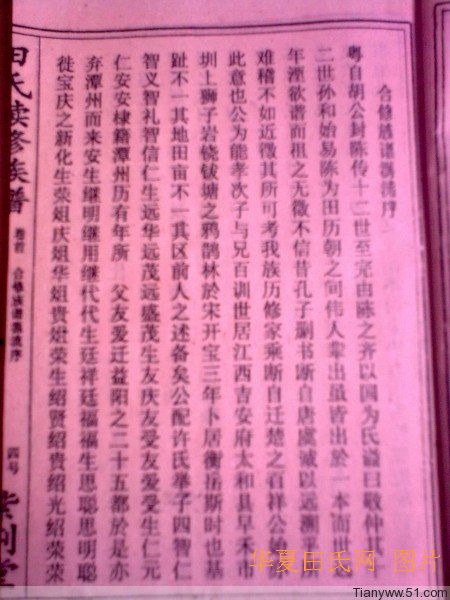 合修族谱溯流序
粤自胡公封陈传十二世至完由陈之齐以国为氏谥曰敬仲其十
二世孙和始易陈为田历朝之间伟人辈出虽皆出於一本而世远
年湮欲谱而祖之无徵不信昔孔子删书断自唐虞诚以远溯乎
难稽不如近徵其所可考我族历修家乘断自迁楚之百祥公始
此意也公为能孝次子与兄百训世居江西吉安府太和县早禾市
圳上狮子岩铙钹塘之鸦鹊林於宋开宝三年卜居衡岳斯时也基
趾不一其地田亩不一其区前人之述备矣公配许氏举子四智仁
智义智礼智信仁生远华远茂远盛茂生友庆友受友爱受生仁元
仁安安棣籍潭州历有年所 父友爱迁益阳之二十五都於是亦
弃潭州而来安生继明继用继代代生廷祥廷福福生思聪思明聪
徙宝庆之新化生荣姐庆姐华姐贵姐荣生绍贤绍贵绍光绍荣荣
田氏续修族谱
卷首
合修族谱溯流序
四号
紫荆堂
华夏田氏网 图片
Tianyww.51.com